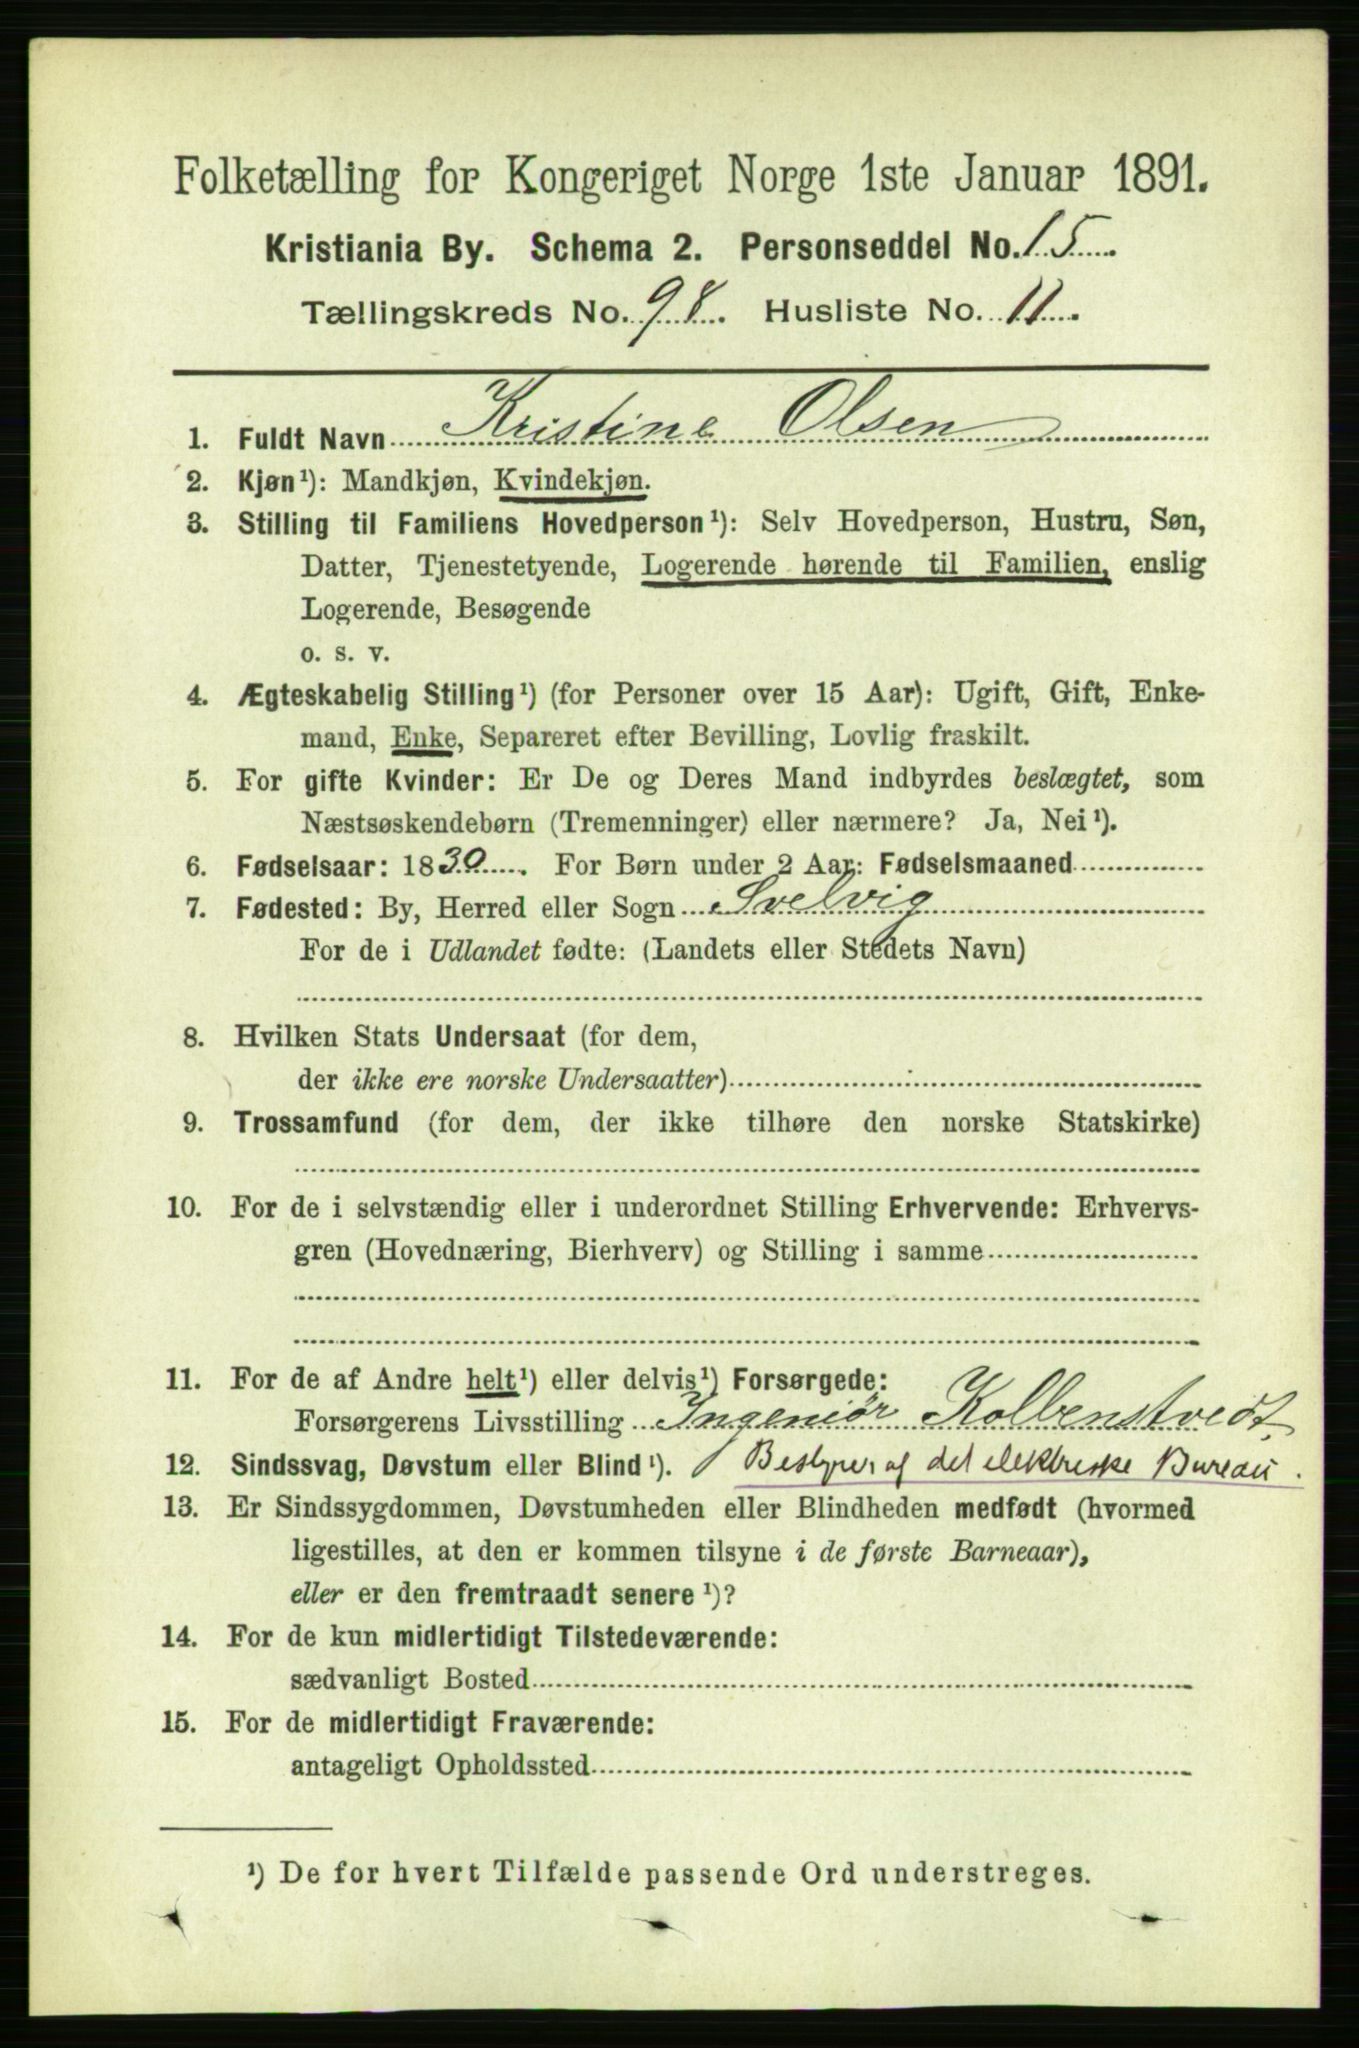 Folketælling for Kongeriget Norge 1ste Januar 1891.
Kristiania By. Schema 2. Personseddel No. 15
Tællingskreds No. 98. Husliste No. 11.
1. Fuldt Navn Kristine Olsen
2. Kjøn¹): Mandkjøn, Kvindekjøn.
3. Stilling til Familiens Hovedperson¹): Selv Hovedperson, Hustru, Søn,
Datter, Tjenestetyende, Logerende hørende til Familien, enslig
Logerende, Besøgende
o. s. v.
4. Ægteskabelig Stilling¹) (for Personer over 15 Aar): Ugift, Gift, Enke-
mand, Enke, Separeret efter Bevilling, Lovlig fraskilt.
5. For gifte Kvinder: Er De og Deres Mand indbyrdes beslægtet, som
Næstsøskendebørn (Tremenninger) eller nærmere? Ja, Nei¹).
6. Fødselsaar: 1830. For Børn under 2 Aar: Fødselsmaaned
7. Fødested: By, Herred eller Sogn Svelvig
For de i Udlandet fødte: (Landets eller Stedets Navn)
8. Hvilken Stats Undersaat (for dem,
der ikke ere norske Undersaatter)
9. Trossamfund (for dem, der ikke tilhøre den norske Statskirke)
10. For de i selvstændig eller i underordnet Stilling Erhvervende: Erhvervs-
gren (Hovednæring, Bierhverv) og Stilling i samme
11. For de af Andre helt¹) eller delvis¹) Forsørgede:
Forsørgerens Livsstilling Ingeniør Kolbenstvedt.
12. Sindssvag, Døvstum eller Blind¹). Bestyrer af det elektriske Bureau.
13. Er Sindssygdommen, Døvstumheden eller Blindheden medfødt (hvormed
ligestilles, at den er kommen tilsyne i de første Barneaar),
eller er den fremtraadt senere¹)?
14. For de kun midlertidigt Tilstedeværende:
sædvanligt Bosted
15. For de midlertidigt Fraværende:
antageligt Opholdssted
¹) De for hvert Tilfælde passende Ord understreges.